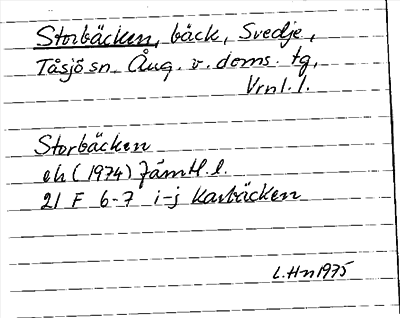 Storbäcken, bäck, Svedje,
Tåsjö sn. Ång. v. doms. tg,
Vrnl. l.
Storbäcken
ek (1974) Jämtl. l.
21 F 6-7 i-j Karbäcken
L. Hn 1975